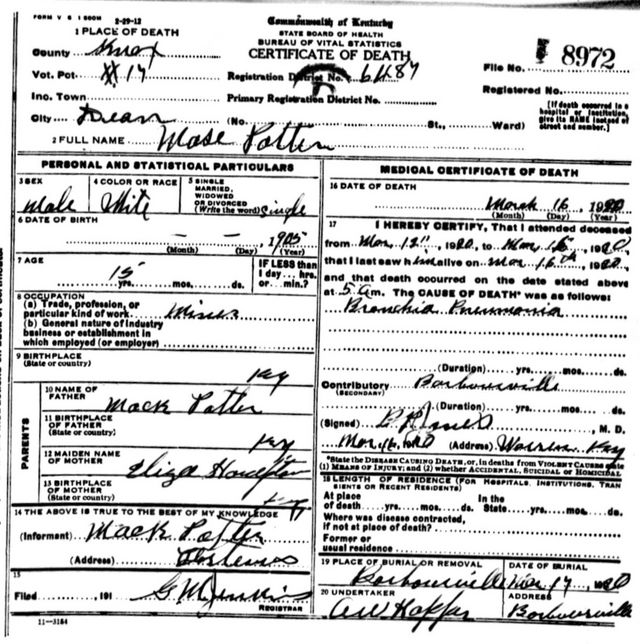 FORM V S 1 500M 2-29-12
Commonwealth of Kentucky
STATE BOARD OF HEALTH
BUREAU OF VITAL STATISTICS
CERTIFICATE OF DEATH
1 PLACE OF DEATH
County Knox
File No. 8972
Vot. Pct 17
Registration District No. 6487
Registered No.
Inc. Town
Primary Registration District No.
[If death occurred in a hospital or institution, give its NAME instead of street and number.]
City (No. St., Ward)
2 FULL NAME Mose Potter
PERSONAL AND STATISTICAL PARTICULARS
3 SEX Male
4 COLOR OR RACE White
5 SINGLE MARRIED, WIDOWED OR DIVORCED (Write the word) Single
6 DATE OF BIRTH
– – 1905
(Month) (Day) (Year)
7 AGE
15 yrs. mos. ds.
IF LESS than 1 day... hrs. or... min.?
8 OCCUPATION
(a) Trade, profession, or particular kind of work Miner
(b) General nature of industry business or establishment in which employed (or employer)
9 BIRTHPLACE
(State or country) Ky
PARENTS
10 NAME OF FATHER Mack Potter
11 BIRTHPLACE OF FATHER
(State or country) Ky
12 MAIDEN NAME OF MOTHER Eliza
13 BIRTHPLACE OF MOTHER
(State or country) Ky
14 THE ABOVE IS TRUE TO THE BEST OF MY KNOWLEDGE
(Informant) Mack Potter
(Address)
15
Filed , 191 G M Jenkins
REGISTRAR
11-3184
MEDICAL CERTIFICATE OF DEATH
16 DATE OF DEATH
March 16, 1920
(Month) (Day) (Year)
17 I HEREBY CERTIFY, That I attended deceased
from Mar, 12", 1920, to Mar, 16, 1920
that I last saw him alive on Mar 16th, 1920,
and that death occurred on the date stated above
at 5 a.m. The CAUSE OF DEATH* was as follows:
Bronchia Pneumonia
(Duration) yrs. mos. ds.
Contributory Barbourville
(SECONDARY)
(Duration) yrs. mos. ds.
(Signed) , M. D.
Mar, 16, 1920 (Address) Warren Ky
*State the DISEASE CAUSING DEATH, or, in deaths from VIOLENT CAUSES state
(1) MEANS OF INJURY; and (2) whether ACCIDENTAL, SUICIDAL or HOMICIDAL
18 LENGTH OF RESIDENCE (FOR HOSPITALS, INSTITUTIONS, TRANSIENTS OR RECENT RESIDENTS)
At place of death yrs. mos. ds. In the State yrs. mos. ds.
Where was disease contracted, if not at place of death?
Former or usual residence
19 PLACE OF BURIAL OR REMOVAL Barbourville
DATE OF BURIAL Mar 17, 1920
20 UNDERTAKER
ADDRESS Barbourville